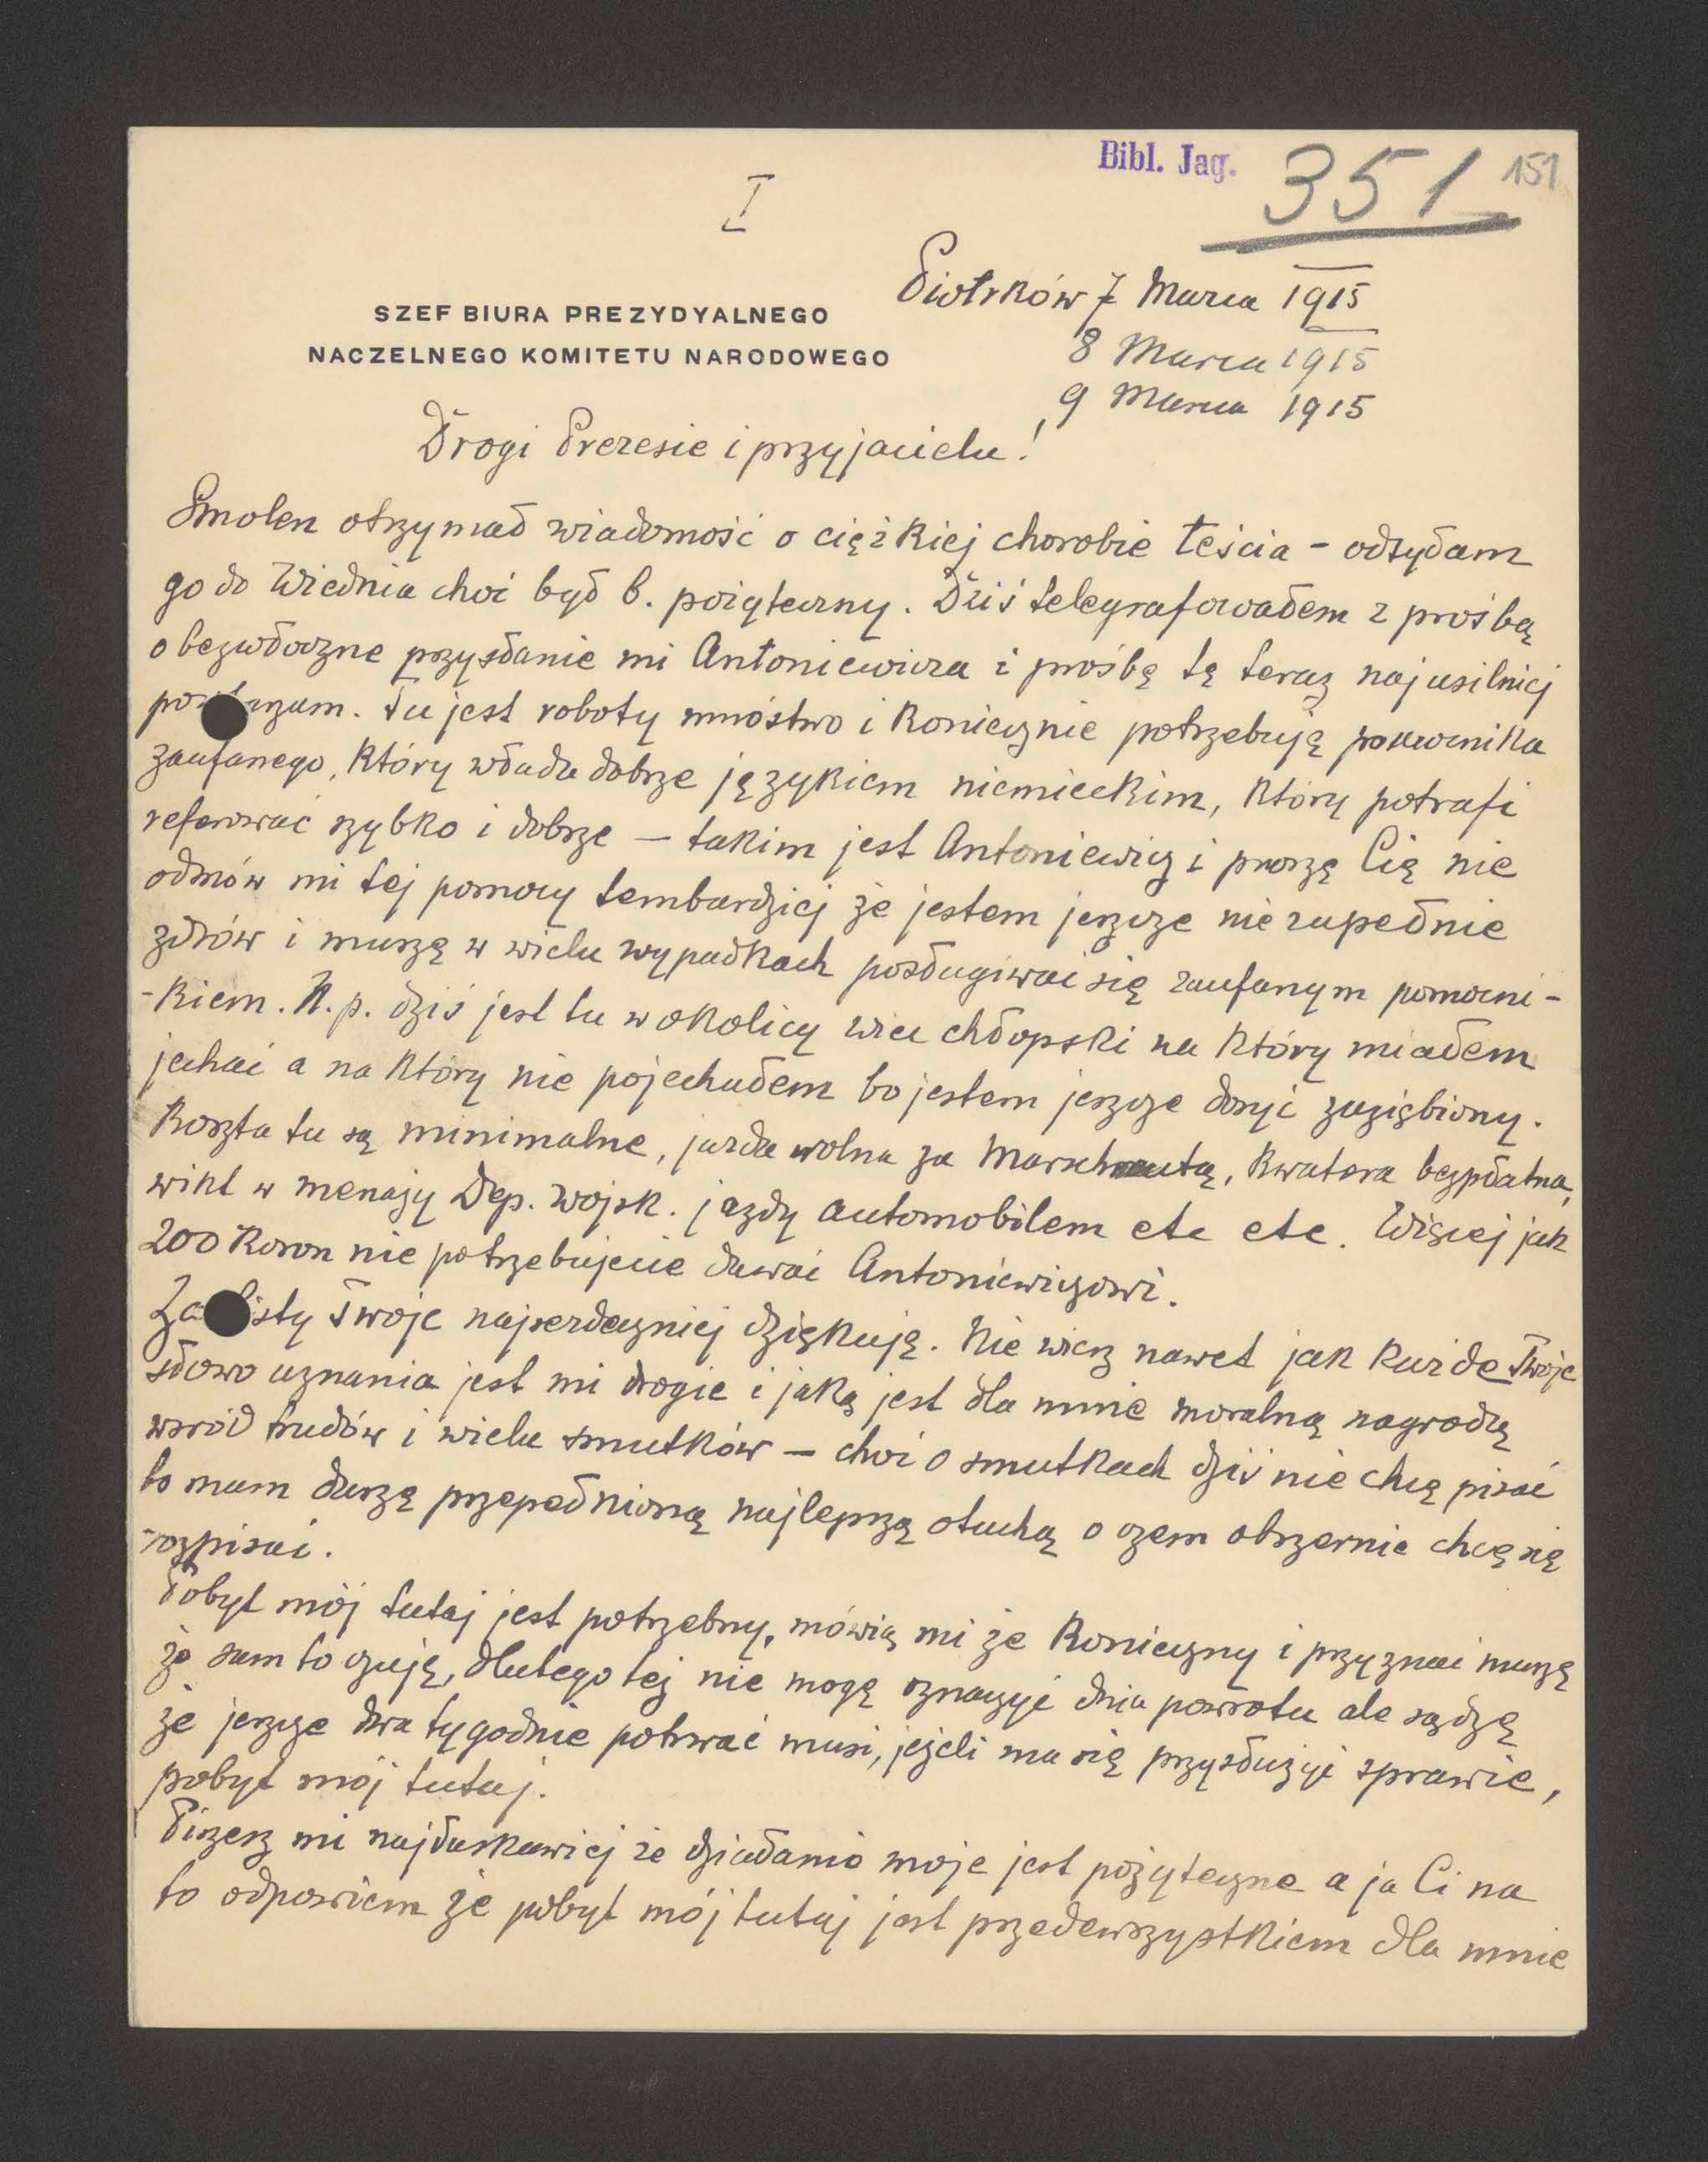 Bibl. Jag.
351
151
I
Piotrków 7 Marca 1915
8 Marca 1915
9 Marca 1915
SZEF BIURA PREZYDYALNEGO
NACZELNEGO KOMITETU NARODOWEGO
Drogi Prezesie i przyjacielu!
Smolen otrzymał wiadomość o ciężkiej chorobie teścia – odsyłam
go do Wiednia choć był b. pożyteczny. Dziś telegrafowałem z prośbą
o bezwłoczne przysłanie mi Antoniewicza i prośbę tę teraz najusilniej
powtarzam. Tu jest roboty mnóstwo i koniecznie potrzebuję pomocnika
zaufanego, który włada dobrze językiem niemieckim, który potrafi
referować szybko i dobrze – takim jest Antoniewicz i proszę Cię nie
odmów mi tej pomocy tembardziej że jestem jeszcze nie zupełnie
zdrów i muszę w wielu wypadkach posługiwać się zaufanym pomocni-
-kiem. N.p. dziś jest tu w okolicy wiec chłopski na który miałem
jechać a na który nie pojechałem bo jestem jeszcze dosyć zaziębiony.
Koszta tu są minimalne, jazda wolna za Marschrutą, kwatera bezpłatna,
wikt w menaży Dep. Wojsk. jazdy automobilem etc etc. Więcej jak
200 Koron nie potrzebujecie dawać Antoniewiczowi.
Za listy Twoje najserdeczniej dziękuję. Nie wiesz nawet jak każde Twoje
słowo uznania jest mi drogie i jaką jest dla mnie moralną nagrodą
wśród trudów i wielu smutków – choć o smutkach dziś nie chcę pisać
bo mam duszę przepełnioną najlepszą otuchą o czem obszernie chcę się
rozpisać.
Pobyt mój tutaj jest potrzebny, mówią mi że konieczny i przyznać muszę
że sam to czuję, dlatego też nie mogę oznaczyć dnia powrotu ale sądzę
że jeszcze dwa tygodnie potrwać musi, jeżeli ma się przysłużyć sprawie,
pobyt mój tutaj.
Piszesz mi najłaskawiej że działanie moje jest pożyteczne a ja Ci na
to odpowiem że pobyt mój tutaj jest przedewszystkiem dla mnie